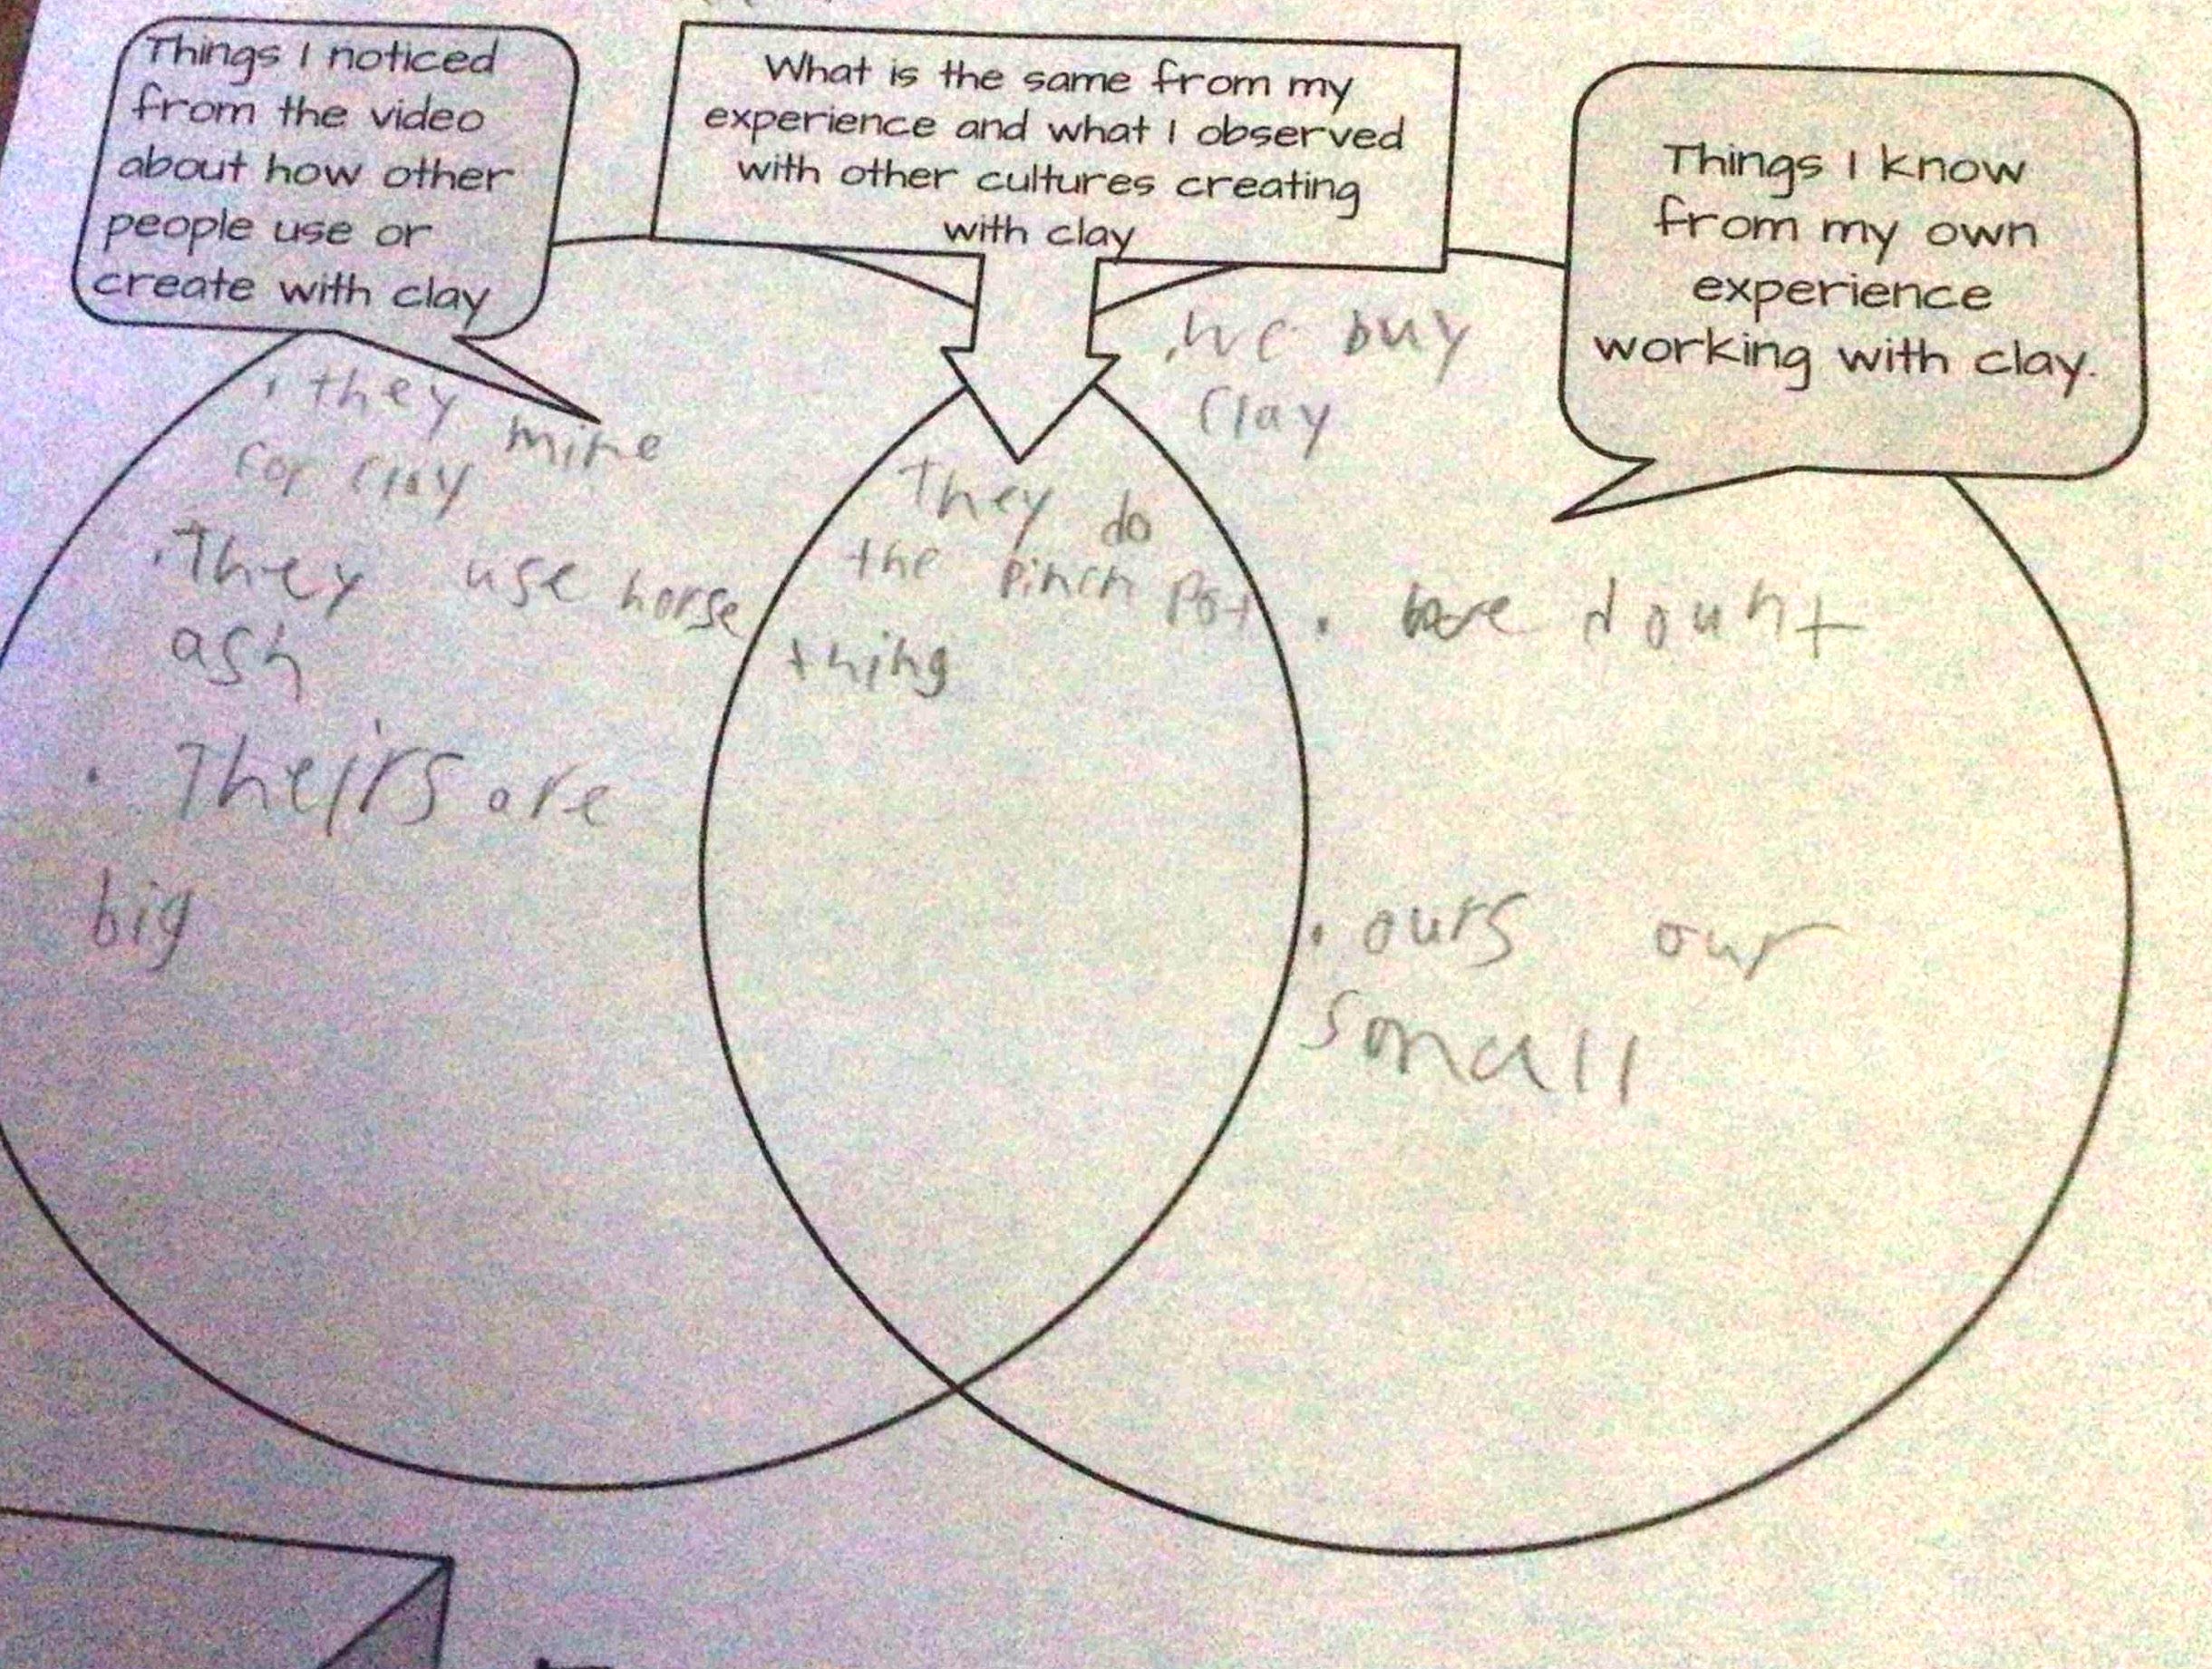 Things I noticed
from the video
about how other
people use or
create with clay
What is the same from my
experience and what I observed
with other cultures creating
with clay
Things I know
from my own
experience
working with clay.
. they mine
for clay
. They use horse
ash
. Theirs are
big
They do
the pinch pot
thing
. we buy
clay
. we dount
. ours our
small